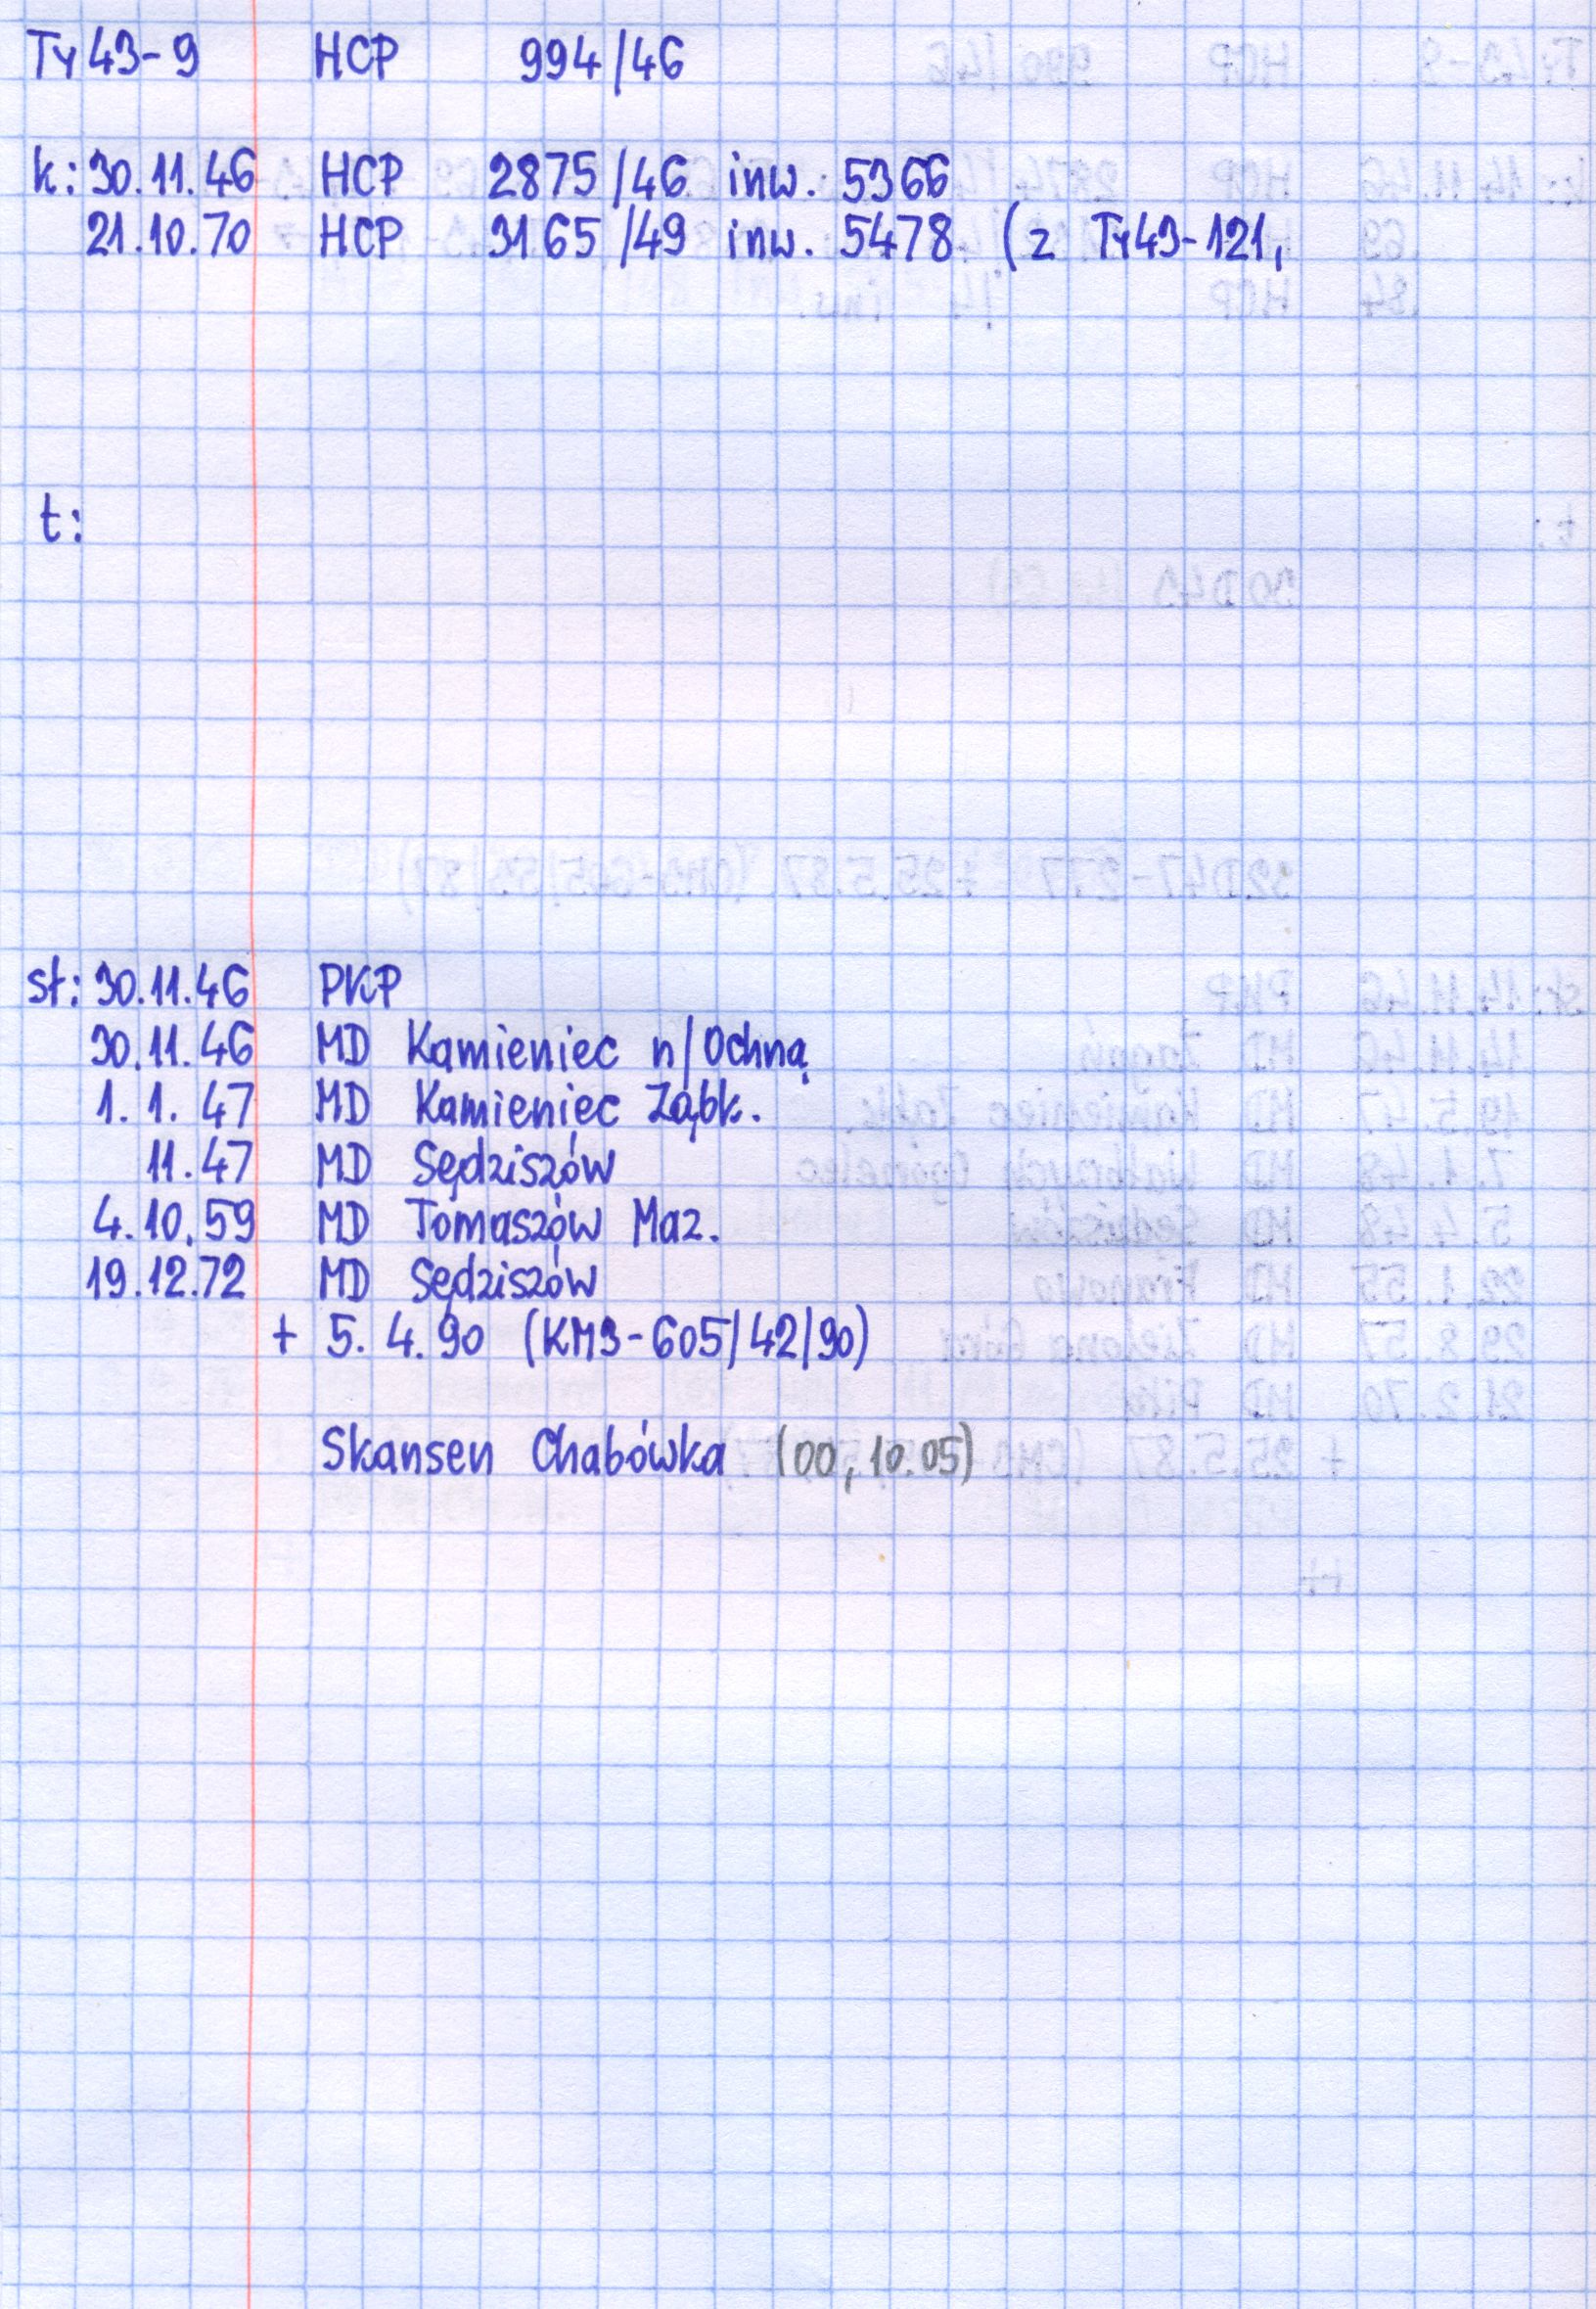 Ty43-9 HCP 994/46
k: 30.11.46 HCP 2875/46 inw. 5366
21.10.70 HCP 3165/49 inw. 5478 (z Ty43-121,
t:
st: 30.11.46 PKP
30.11.46 MD Kamieniec n/Ochną
1.1.47 MD Kamieniec Ząbk.
11.47 MD Sędziszów
4.10.59 MD Tomaszów Maz.
19.12.72 MD Sędziszów
+ 5.4.90 (KM3-605/42/90)
Skansen Chabówka (00, 10.05)